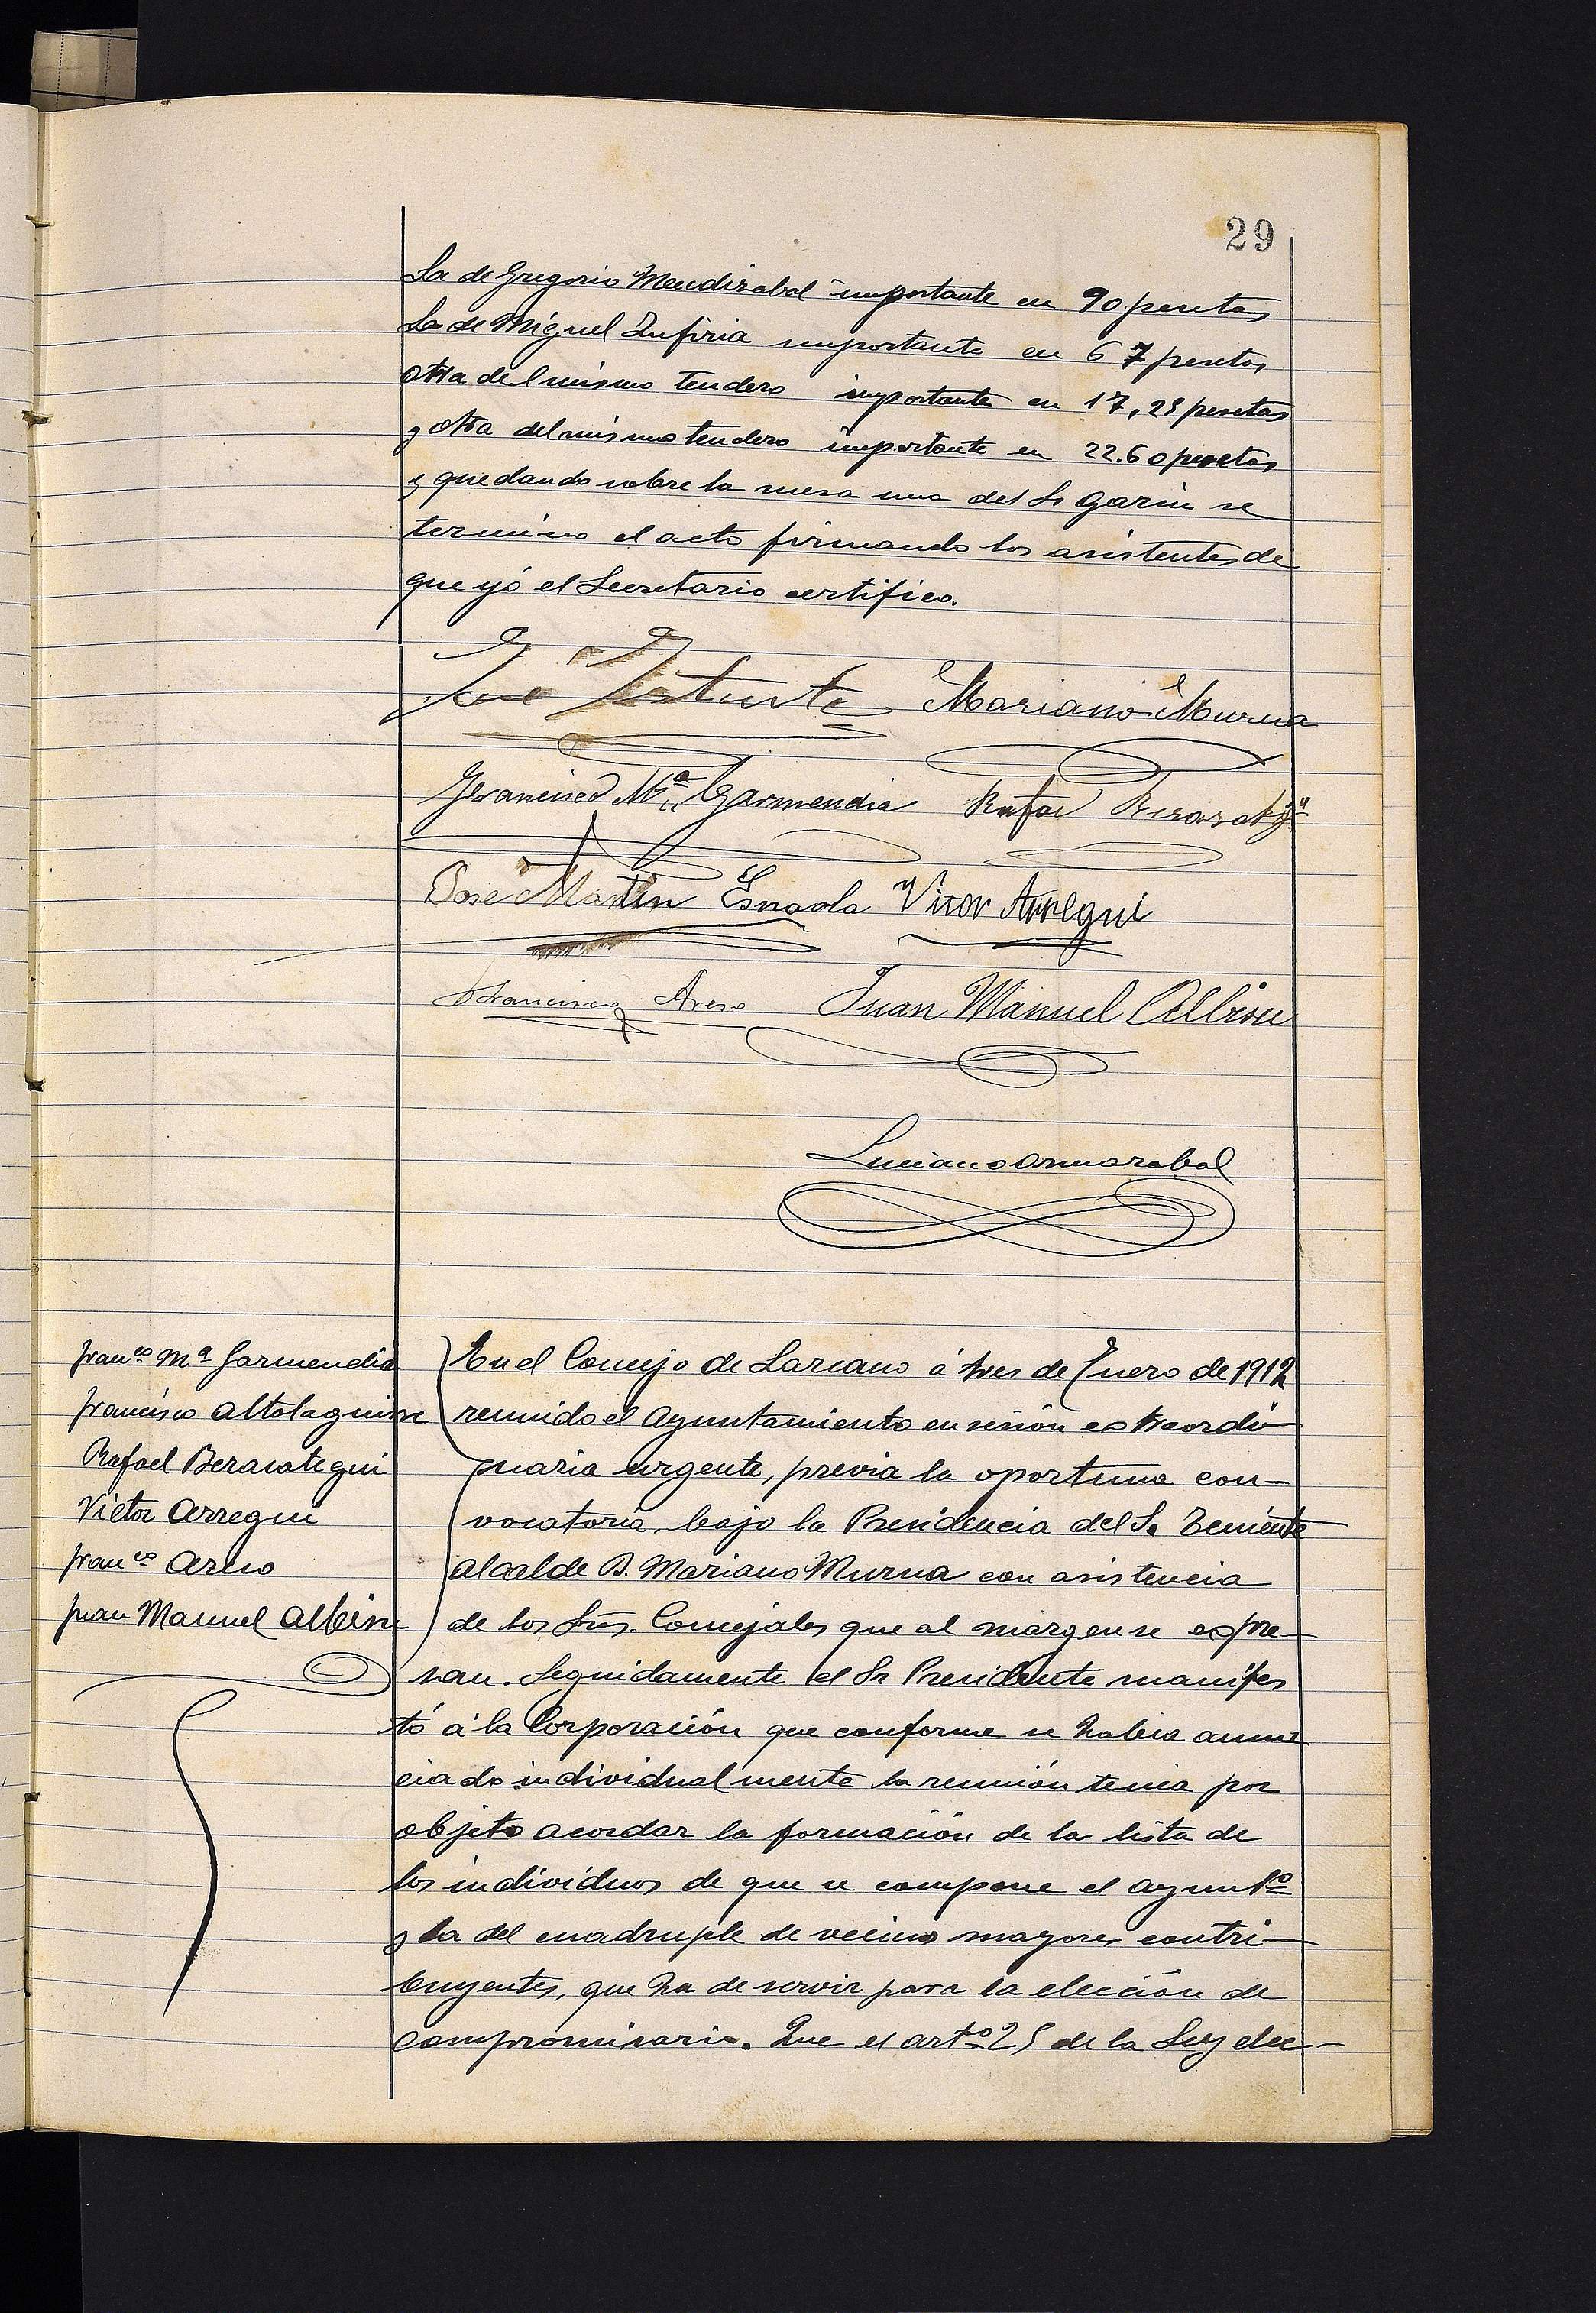 29
La de Gregorio Mendizabal importante en 90 pesetas
La de Miguel Zufiria importante en 67 pesetas
otra del mismo tendero importante en 17,25 pesetas
y otra del mismo tendero importante en 22.60 pesetas
y quedando sobre la mesa una del Sr Garin se
termino el acto firmando los asistentes de
que yó el Secretario certifico.
José Mariano Murua
Francisco Mª Garmendia Rafael Berasategui
José Martin Esnaola Vitor Arregui
Francisco Areso Juan Manuel Albisu
Luciano Ormazabal
Franco Mª Garmendia
Francisco Altolaguirre
Rafael Berasategui
Victor Arregui
Franco Areso
Juan Manuel Albisu
En el Concejo de Lazcano á tres de Enero de 1912
reunido el Ayuntamiento en sesión extraordi
naria urgente, previa la oportuna con-
vocatoria, bajo la Presidencia del Sr Teniente
Alcalde D. Mariano Murua con asistencia
de los Srs. Concejales que al margen se expre-
san. Seguidamente el Sr Presidente manifes
tó á la Corporación que conforme se habia anun
ciado individualmente la reunión tenia por
objeto acordar la formación de la lista de
los individuos de que se compone el Ayuntº
y la del cuadruple de vecinos mayores contri-
buyentes, que ha de servir para la elección de
compromisario. Que el artº 25 de la Ley elec-